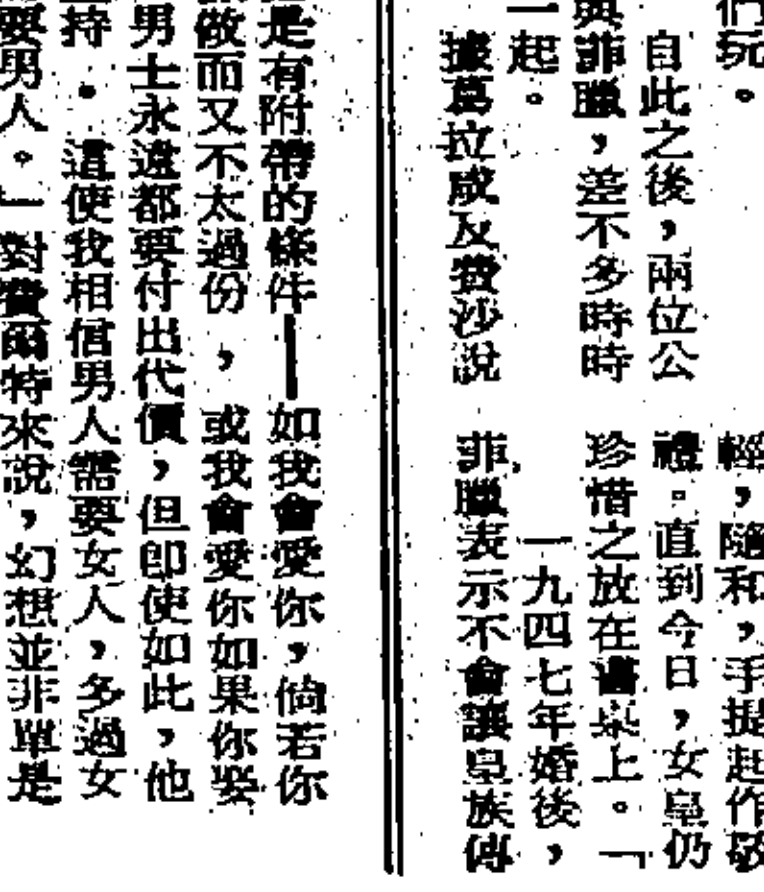 們玩。
自此之後，兩位公
與菲臘，差不多時時
一起。
據葛拉咸及費沙說
輕，隨和，手提起作敬
禮。直到今日，女皇仍
珍惜之放在書枱上。「
一九四七年婚後，
菲臘表示不會讓皇族傳
是有附帶的條件——如我會愛你，倘若你
做而又不太過份，或我會愛你如果你娶
男士永遠都要付出代價，但即使如此，他
持。這使我相信男人需要女人，多過女
要男人。」對費爾特來說，幻想並非單是